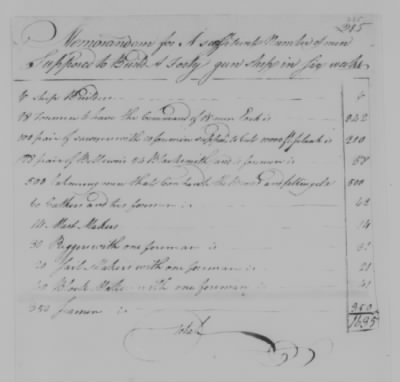 285
Memorandom for A sufficiente Number of men
Supposed to Build A Forty gun ship in six weeks
6 ships Builders 6
18 foremen to have the Command of 18 men Each is 342
100 pair of sawyers with 10 foremen 210
pair of Bellowsis Blacksmith and foreman is
500 Labouring men that Can handle the Broad Axe 500
60 Calkers and two foremen is 62
14 Mast Makers 14
30 Riggers with one foreman is
20 Sail Makers with one foreman is 21
40 Block Makers with one foreman is 41
350 Seamen is 350
total 1695